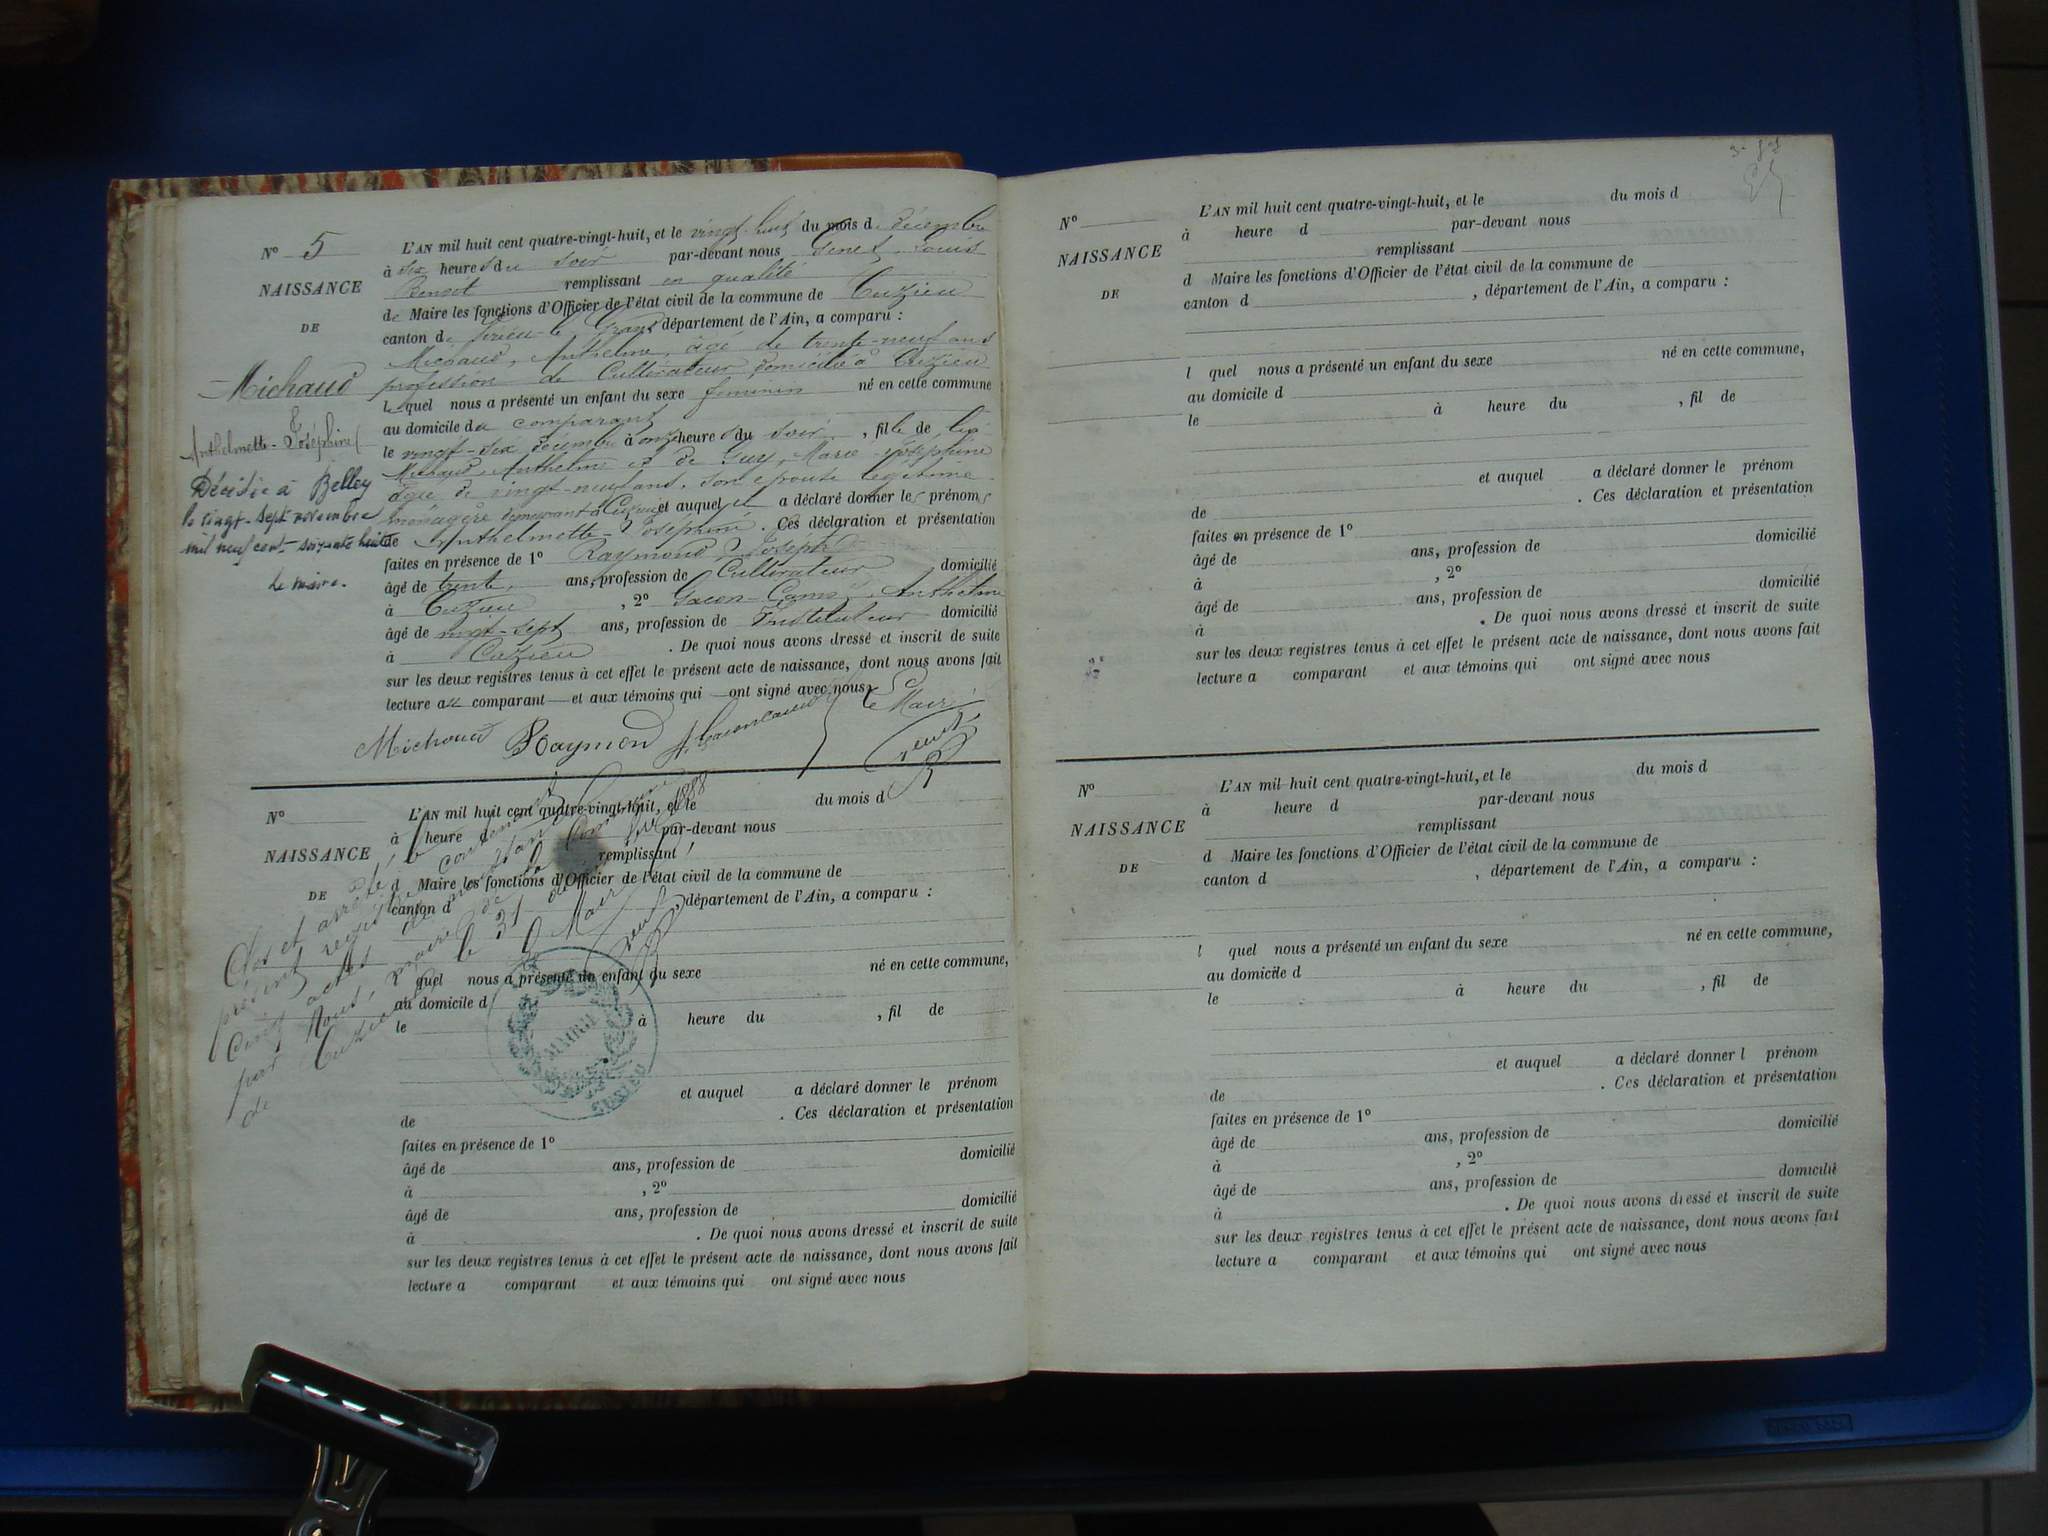 N° 5
NAISSANCE
DE
Michaud
Anthelmette-Joséphine
Décédée à Belley
le vingt-sept novembre
mil neuf cent soixante huit
Le maire.
L'AN mil huit cent quatre-vingt-huit, et le vingt-huit du mois d décembre
à six heures du soir par-devant nous Genet Louis
Benoit remplissant en qualité
de Maire les fonctions d'Officier de l'état civil de la commune de Cuzieu
canton de Virieu-le-Grand département de l'Ain, a comparu :
Michaud, Anthelme, âgé de trente-neuf ans
profession de Cultivateur domicilié à Cuzieu
lequel nous a présenté un enfant du sexe féminin né en cette commune
au domicile du comparant
le vingt-six décembre à onze heures du soir, fille de
Michaud, Anthelme et de Guy, Marie-Joséphine
âgée de vingt-neuf ans, son épouse légitime
ménagère demeurant à Cuzieu et auquel il a déclaré donner les prénoms
de Anthelmette-Joséphine. Ces déclaration et présentation
faites en présence de 1° Raymond, Joseph
âgé de trente, ans, profession de Cultivateur domicilié
à Cuzieu, 2° Gacon-Camoz, Anthelme
âgé de vingt-sept ans, profession de Instituteur domicilié
à Cuzieu. De quoi nous avons dressé et inscrit de suite
sur les deux registres tenus à cet effet le présent acte de naissance, dont nous avons fait
lecture au comparant et aux témoins qui ont signé avec nous
Michaud Raymond Le Maire
N°
NAISSANCE
DE
L'AN mil huit cent quatre-vingt-huit, et le du mois d
à heure d par-devant nous
remplissant
d Maire les fonctions d'Officier de l'état civil de la commune de
canton d , département de l'Ain, a comparu :
l quel nous a présenté un enfant du sexe né en cette commune,
au domicile d
le à heure du , fil de
et auquel a déclaré donner le prénom
de . Ces déclaration et présentation
faites en présence de 1°
âgé de ans, profession de domicilié
à , 2°
âgé de ans, profession de domicilié
à . De quoi nous avons dressé et inscrit de suite
sur les deux registres tenus à cet effet le présent acte de naissance, dont nous avons fait
lecture a comparant et aux témoins qui ont signé avec nous
Clos et arrêté le
présent registre contenant
Cinq actes de naissance
par Nous, maire de la Commune
de Cuzieu le 31 décembre 1888
Le Maire
MAIRIE
N°
NAISSANCE
DE
L'AN mil huit cent quatre-vingt-huit, et le du mois d
à heure d par-devant nous
remplissant
d Maire les fonctions d'Officier de l'état civil de la commune de
canton d , département de l'Ain, a comparu :
l quel nous a présenté un enfant du sexe né en cette commune,
au domicile d
le à heure du , fil de
et auquel a déclaré donner le prénom
de . Ces déclaration et présentation
faites en présence de 1°
âgé de ans, profession de domicilié
à , 2°
âgé de ans, profession de domicilié
à . De quoi nous avons dressé et inscrit de suite
sur les deux registres tenus à cet effet le présent acte de naissance, dont nous avons fait
lecture a comparant et aux témoins qui ont signé avec nous
N°
NAISSANCE
DE
L'AN mil huit cent quatre-vingt-huit, et le du mois d
à heure d par-devant nous
remplissant
d Maire les fonctions d'Officier de l'état civil de la commune de
canton d , département de l'Ain, a comparu :
l quel nous a présenté un enfant du sexe né en cette commune,
au domicile d
le à heure du , fil de
et auquel a déclaré donner l prénom
de . Ces déclaration et présentation
faites en présence de 1°
âgé de ans, profession de domicilié
à , 2°
âgé de ans, profession de domicilié
à . De quoi nous avons dressé et inscrit de suite
sur les deux registres tenus à cet effet le présent acte de naissance, dont nous avons fait
lecture a comparant et aux témoins qui ont signé avec nous